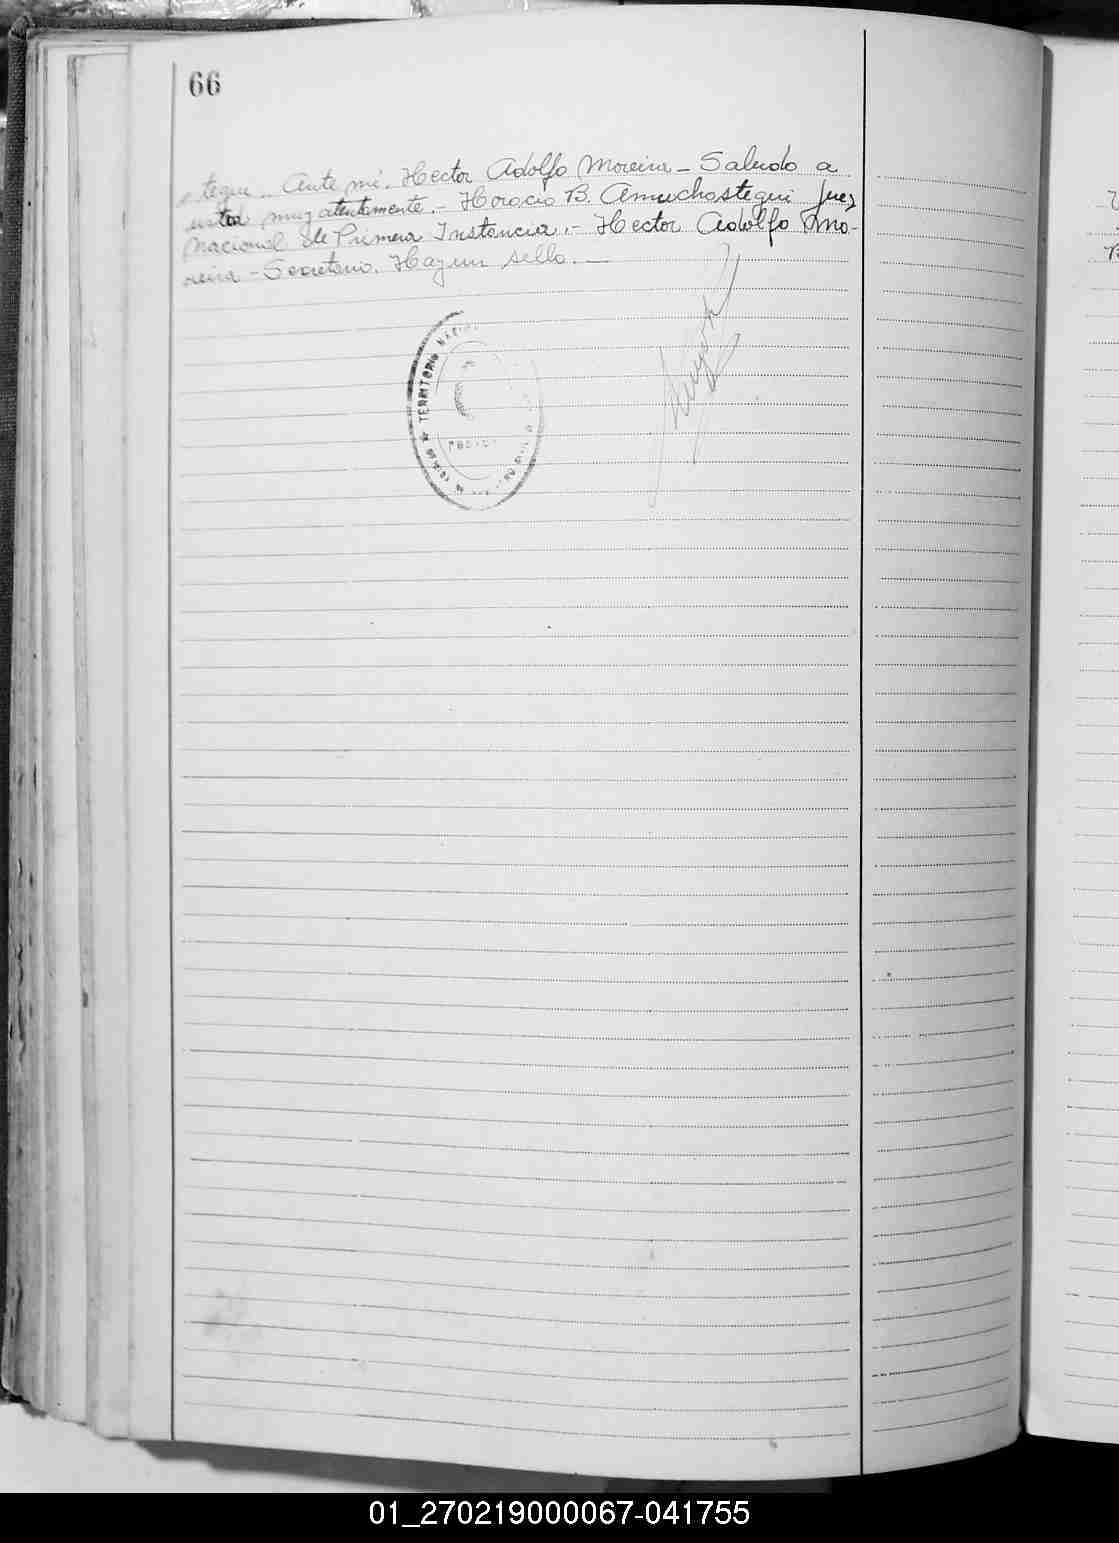 66
stegui. Ante mi. Hector Adolfo Moreira - Saludo a
usted muy atentamente. - Horacio B. Amuchostegui Juez
Nacional de Primera Instancia. - Hector Adolfo Mo-
reira - Secretario. Hay un sello. —
TERRITORIO NACI
01_270219000067-041755